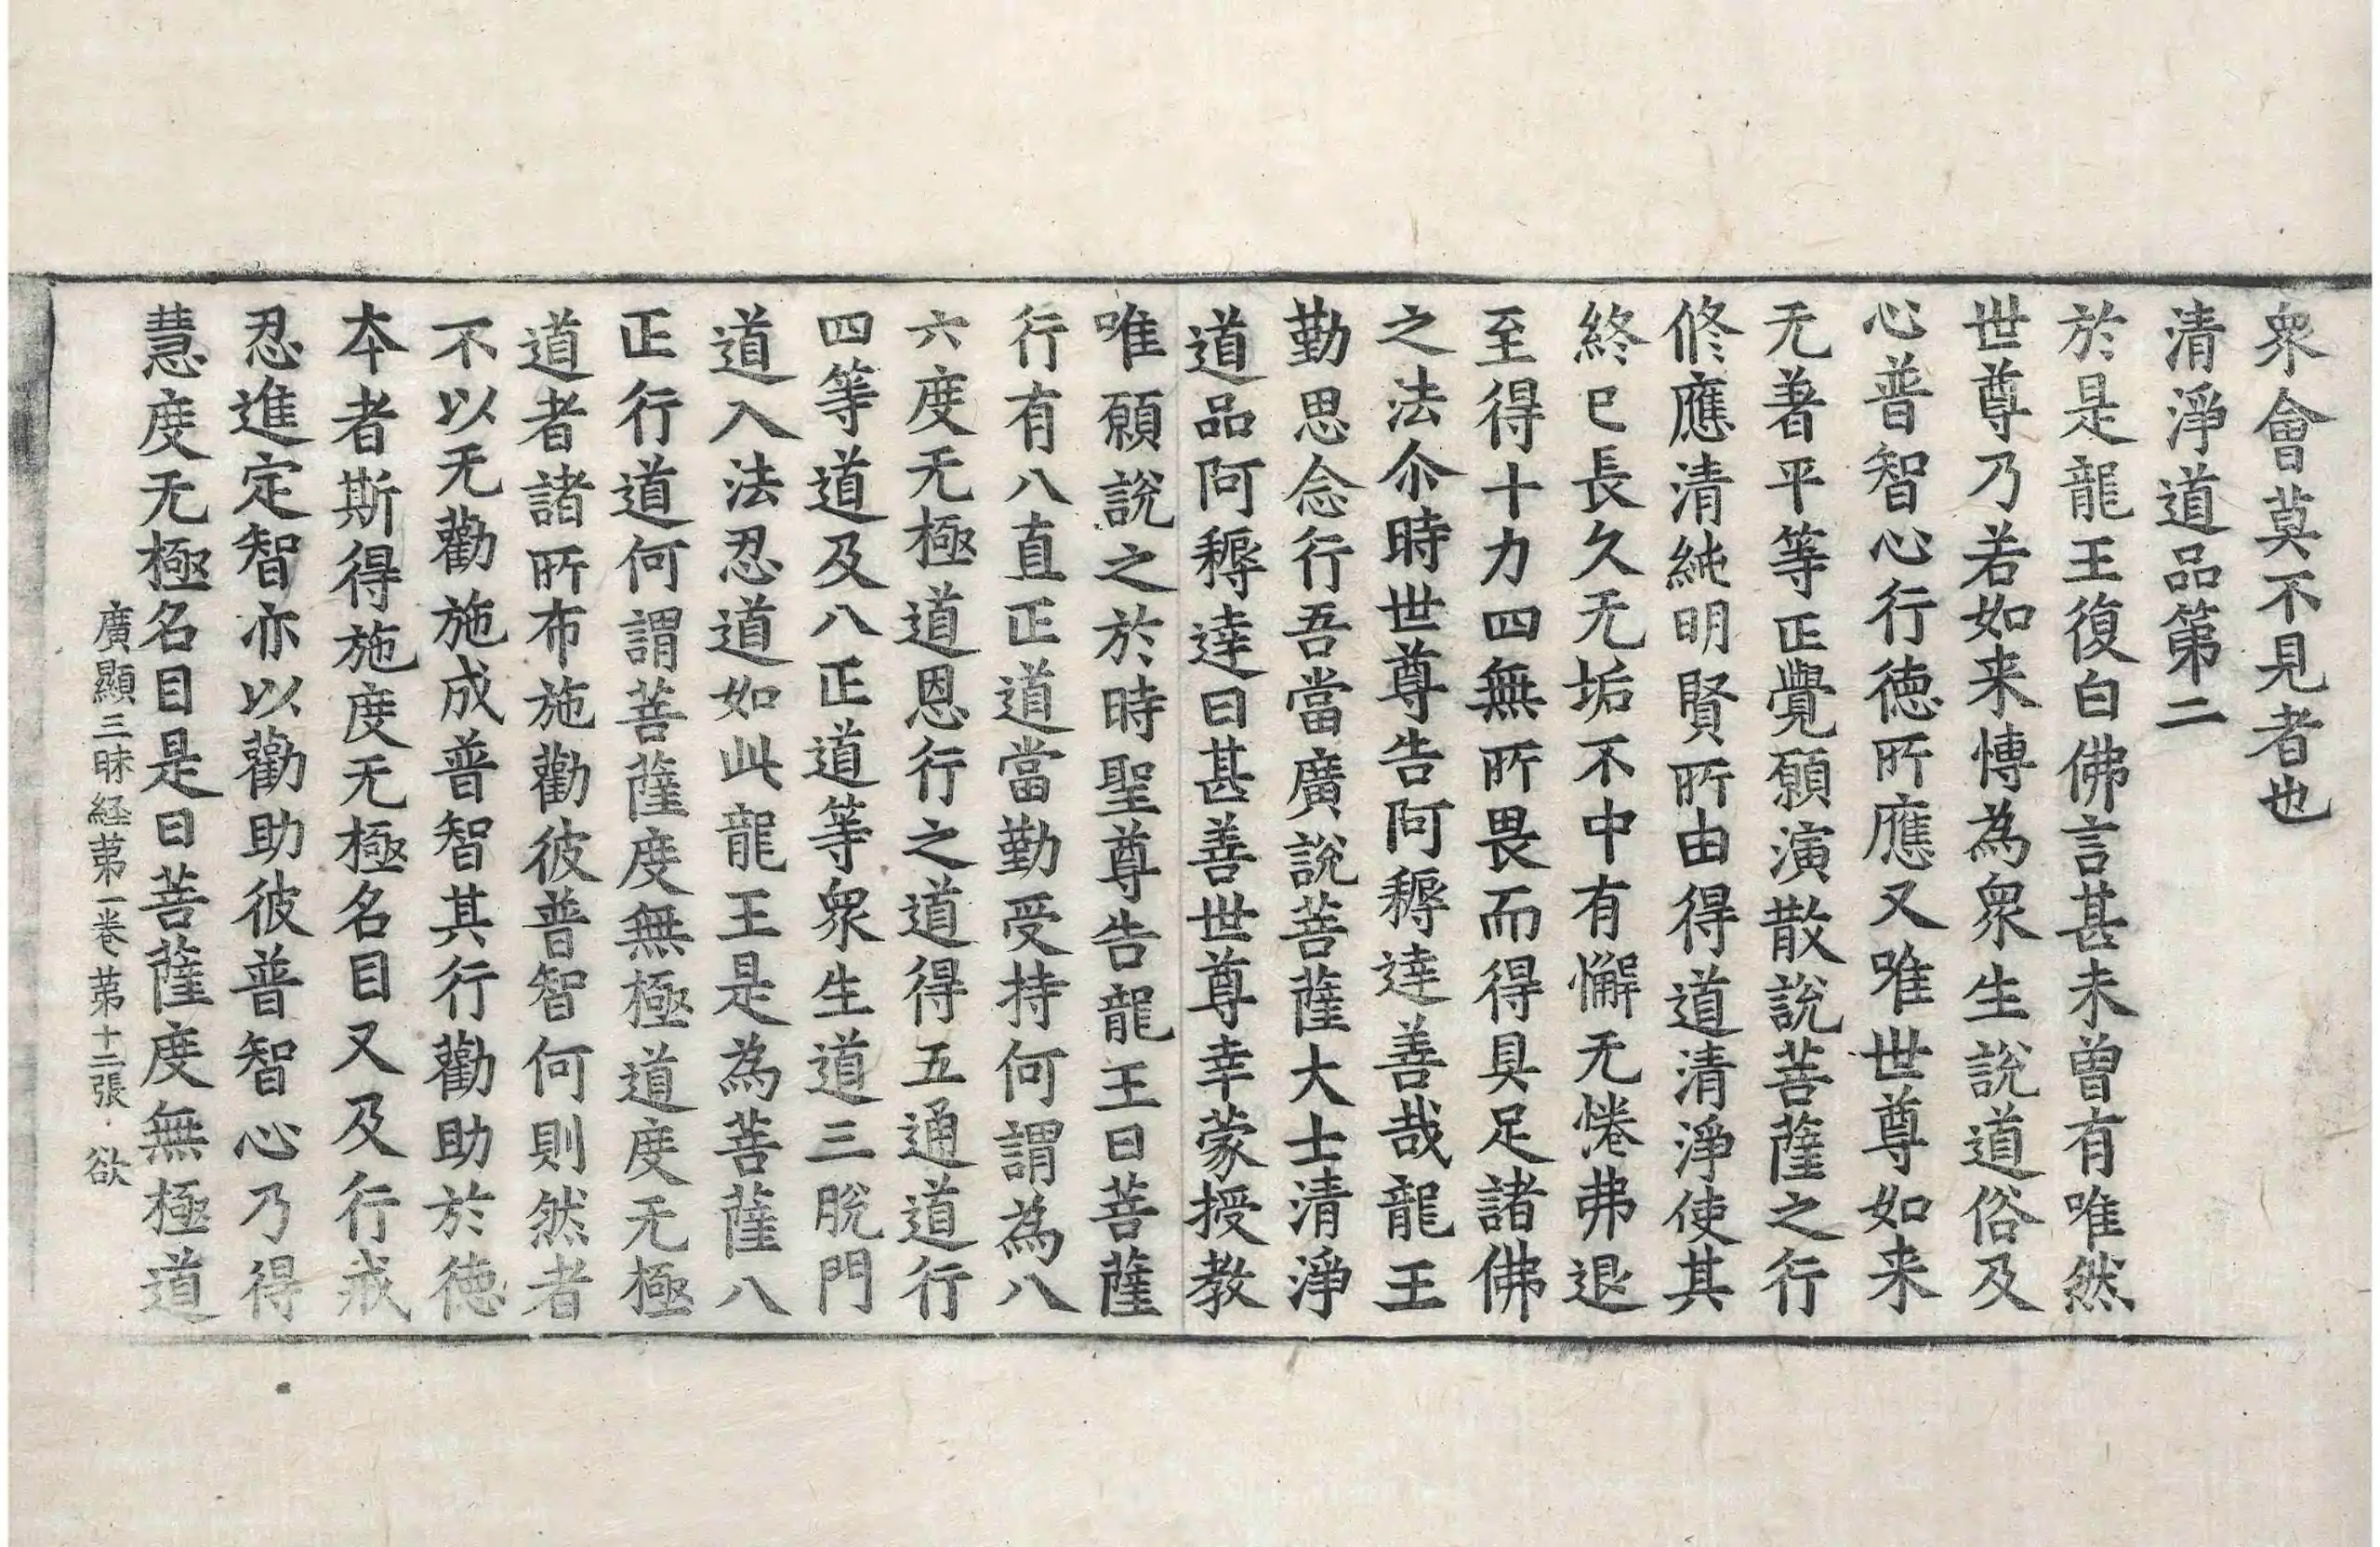 衆會莫不見者也
清淨道品第二
於是龍王復白佛言甚未曾有唯然
世尊乃若如来慱為衆生説道俗及
心普智心行徳所應又唯世尊如来
无著平等正覺願演散說菩薩之行
修應清純明賢所由得道清淨使其
終已長久无垢不中有懈无惓弗退
至得十力四無所畏而得具足諸佛
之法尒時世尊告阿耨達善哉龍王
勤思念行吾當廣說菩薩大士清淨
道品阿耨達曰甚善世尊幸蒙授教
唯願說之於時聖尊告龍王曰菩薩
行有八直正道當勤受持何謂為八
六度无極道恩行之道得五通道行
四等道及八正道等衆生道三脫門
道入法忍道如此龍王是為菩薩八
正行道何謂菩薩度無極道度无極
道者諸所布施勸彼普智何則然者
不以无勸施成普智其行勸助於徳
本者斯得施度无極名目又及行戒
忍進定智亦以勸助彼普智心乃得
慧度无極名目是曰菩薩度無極道
廣顯三昧経苐一卷苐十二張 欲